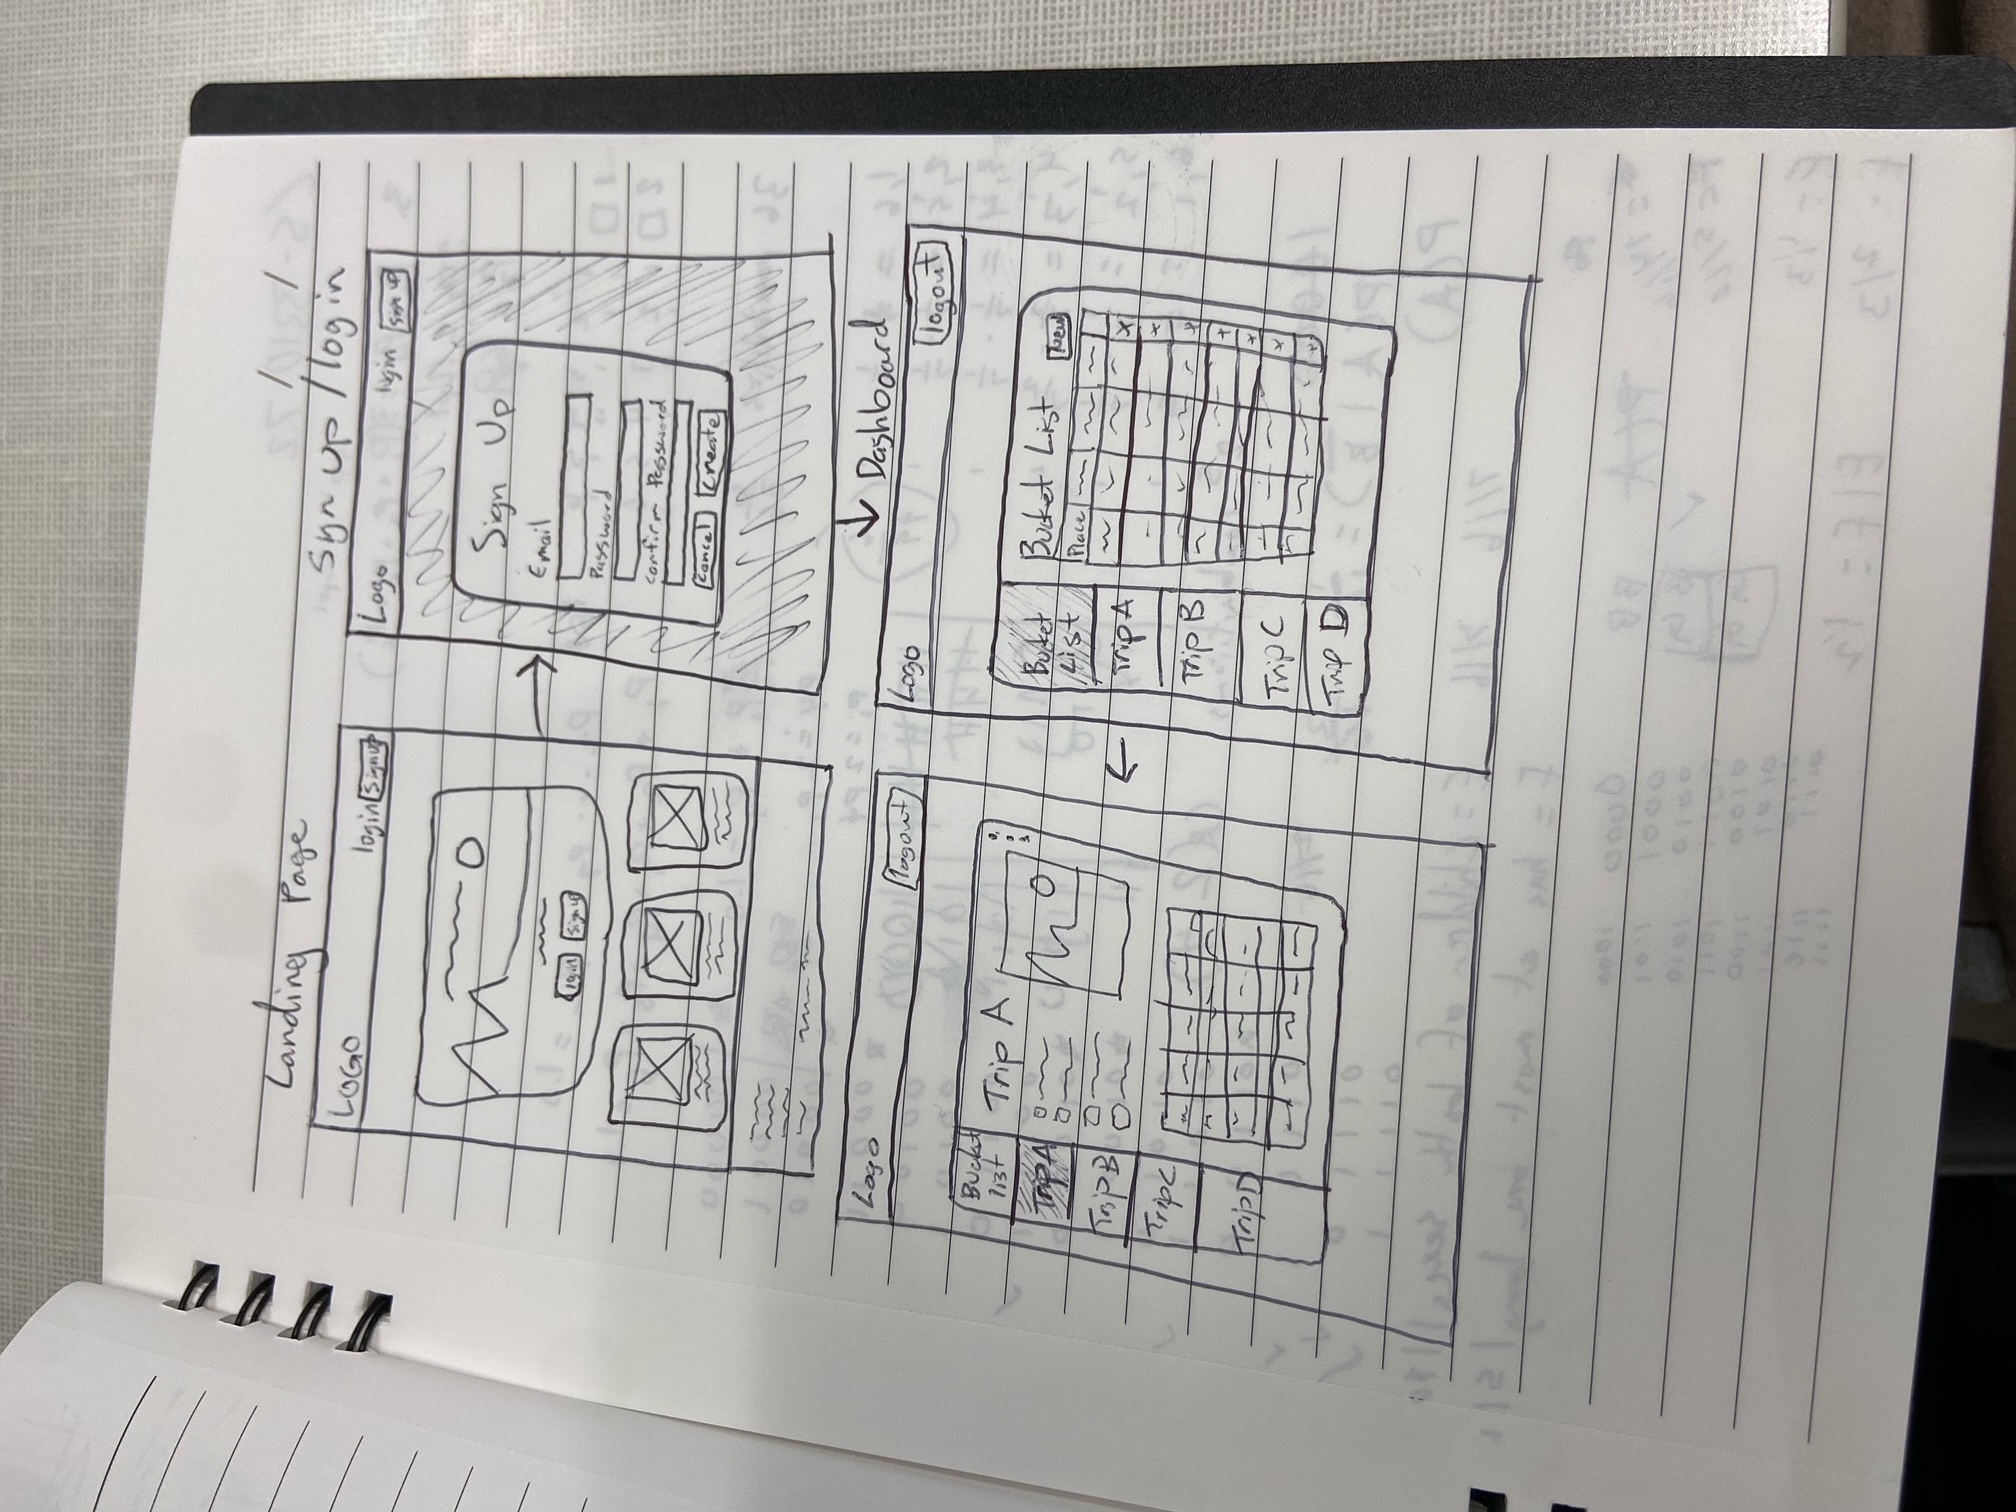 Landing Page
LOGO
login Sign up
login
sign up
Sign up / login
Logo
login
sign up
Sign Up
Email
Password
confirm Password
cancel
create
Dashboard
Logo
logout
Bucket
List
Trip A
Trip B
Trip C
Trip D
Bucket List
New
Place
Logo
logout
Bucket
list
Trip A
Trip B
Trip C
Trip D
Trip A